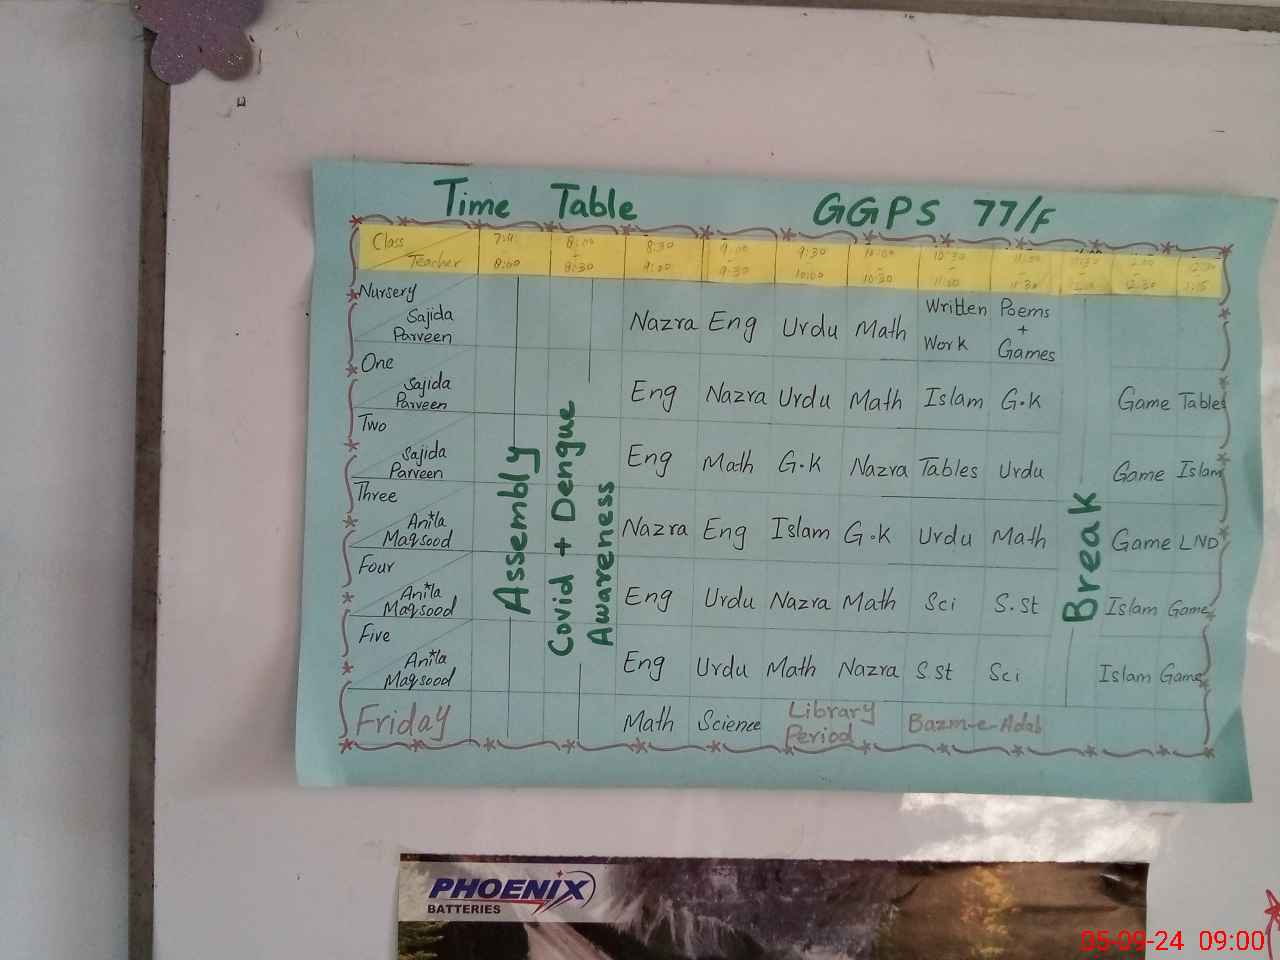 Time Table GGPS 77/F
Class Teacher 8:00 8:00 8:30 8:30 9:00 9:00 9:30 9:30 10:00 10:00 10:30 10:30 11:00 11:00 11:30 12:30
Nursery Sajida Parveen Nazra Eng Urdu Math Written Work Poems + Games
One Sajida Parveen Eng Nazra Urdu Math Islam G.K Game Tables
Two Sajida Parveen Eng Math G.K Nazra Tables Urdu Game Islam
Three Anita Maqsood Nazra Eng Islam G.K Urdu Math Game LND
Four Anita Maqsood Eng Urdu Nazra Math Sci S.St Islam Game
Five Anita Maqsood Eng Urdu Math Nazra S.St Sci Islam Game
Friday Math Science Library Period Bazm-e-Adab
Assembly
Covid + Dengue
Awareness
Break
PHOENIX
BATTERIES
05-09-24 09:00